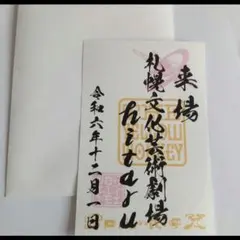 来場
札幌文化芸術劇場
hitaru
令和六年十二月一日